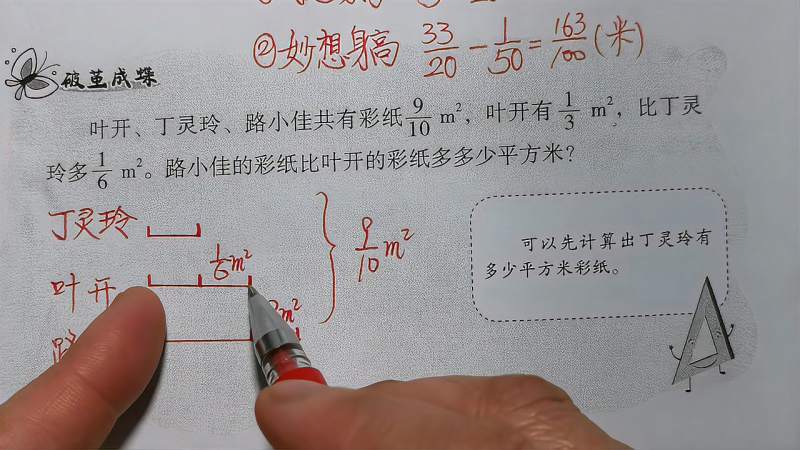 ②妙想身高 33/20 - 1/50 = 163/100 (米)
破茧成蝶
叶开、丁灵玲、路小佳共有彩纸 9/10 m²，叶开有 1/3 m²，比丁灵
玲多 1/6 m²。路小佳的彩纸比叶开的彩纸多多少平方米？
丁灵玲
9/10 m²
可以先计算出丁灵玲有
多少平方米彩纸。
1/6 m²
叶开
m²
路